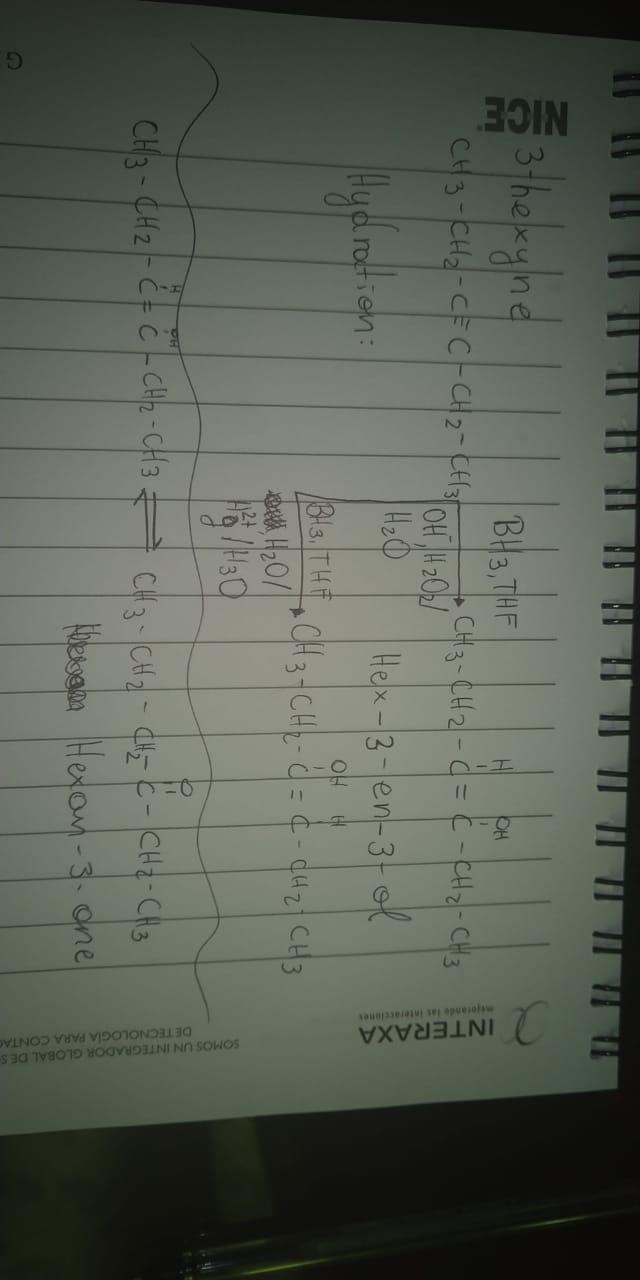 NICE
3-hexyne
BH3, THF
CH3-CH2-C≡C-CH2-CH3
OH-, H2O2/
H2O
H OH
CH3-CH2-C=C-CH2-CH3
Hex-3-en-3-ol
Hydration:
BH3, THF
H2O/
Hg2+/H3O
OH H
CH3-CH2-C=C-CH2-CH3
H OH
CH3-CH2-C=C-CH2-CH3 ⇌
O
CH3-CH2-CH2-C-CH2-CH3
Hexan-3-one
INTERAXA
mejorando las interacciones
SOMOS UN INTEGRADOR GLOBAL DE
DE TECNOLOGÍA PARA
G